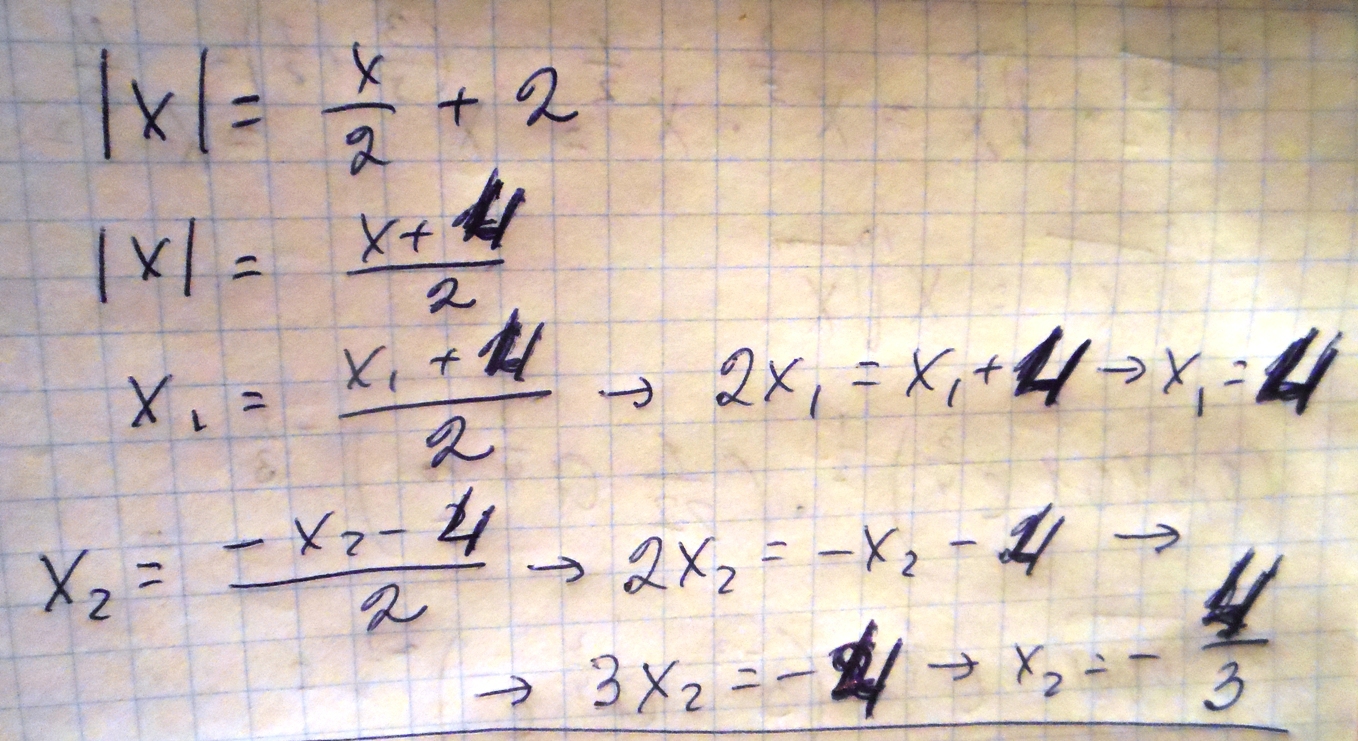 |x| = x/2 + 2
|x| = (x + 4)/2
x₁ = (x₁ + 4)/2 → 2x₁ = x₁ + 4 → x₁ = 4
x₂ = (-x₂ - 4)/2 → 2x₂ = -x₂ - 4 →
→ 3x₂ = -4 → x₂ = -4/3